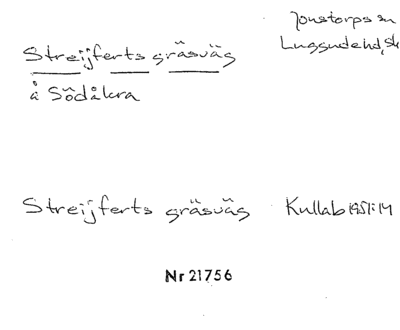 Jonstorps sn
Luggude hd, Sk
Streijferts gräsväg
å Södåkra
Streijferts gräsväg Kullab 1951:14
Nr 21756